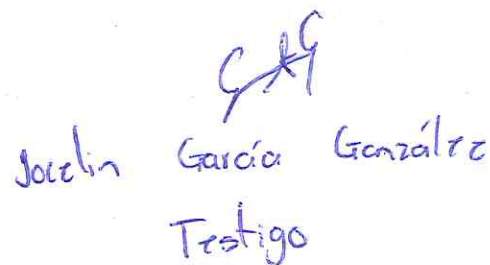 Jocelin García González
Testigo